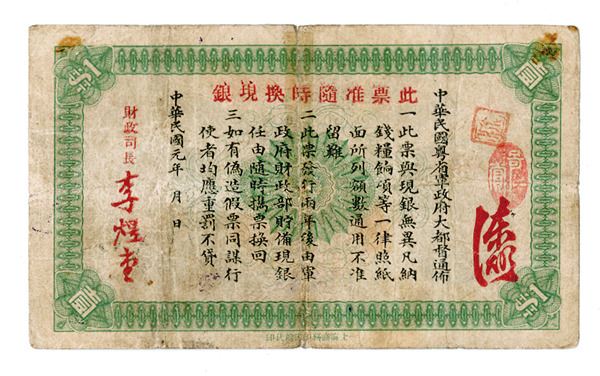 此票准隨時換現銀
中華民國粵省軍政府大都督通佈
一此票與現銀無異凡納
錢糧餉項等一律照紙
面所列額數通用不准
留難
二此票發行兩年後由軍
政府財政部貯備現銀
任由隨時攜票換回
三如有偽造假票同謀行
使者均應重罰不貸
中華民國元年 月 日
財政司長
李煜堂
1
圓
圓
1
上海商務印書館代印